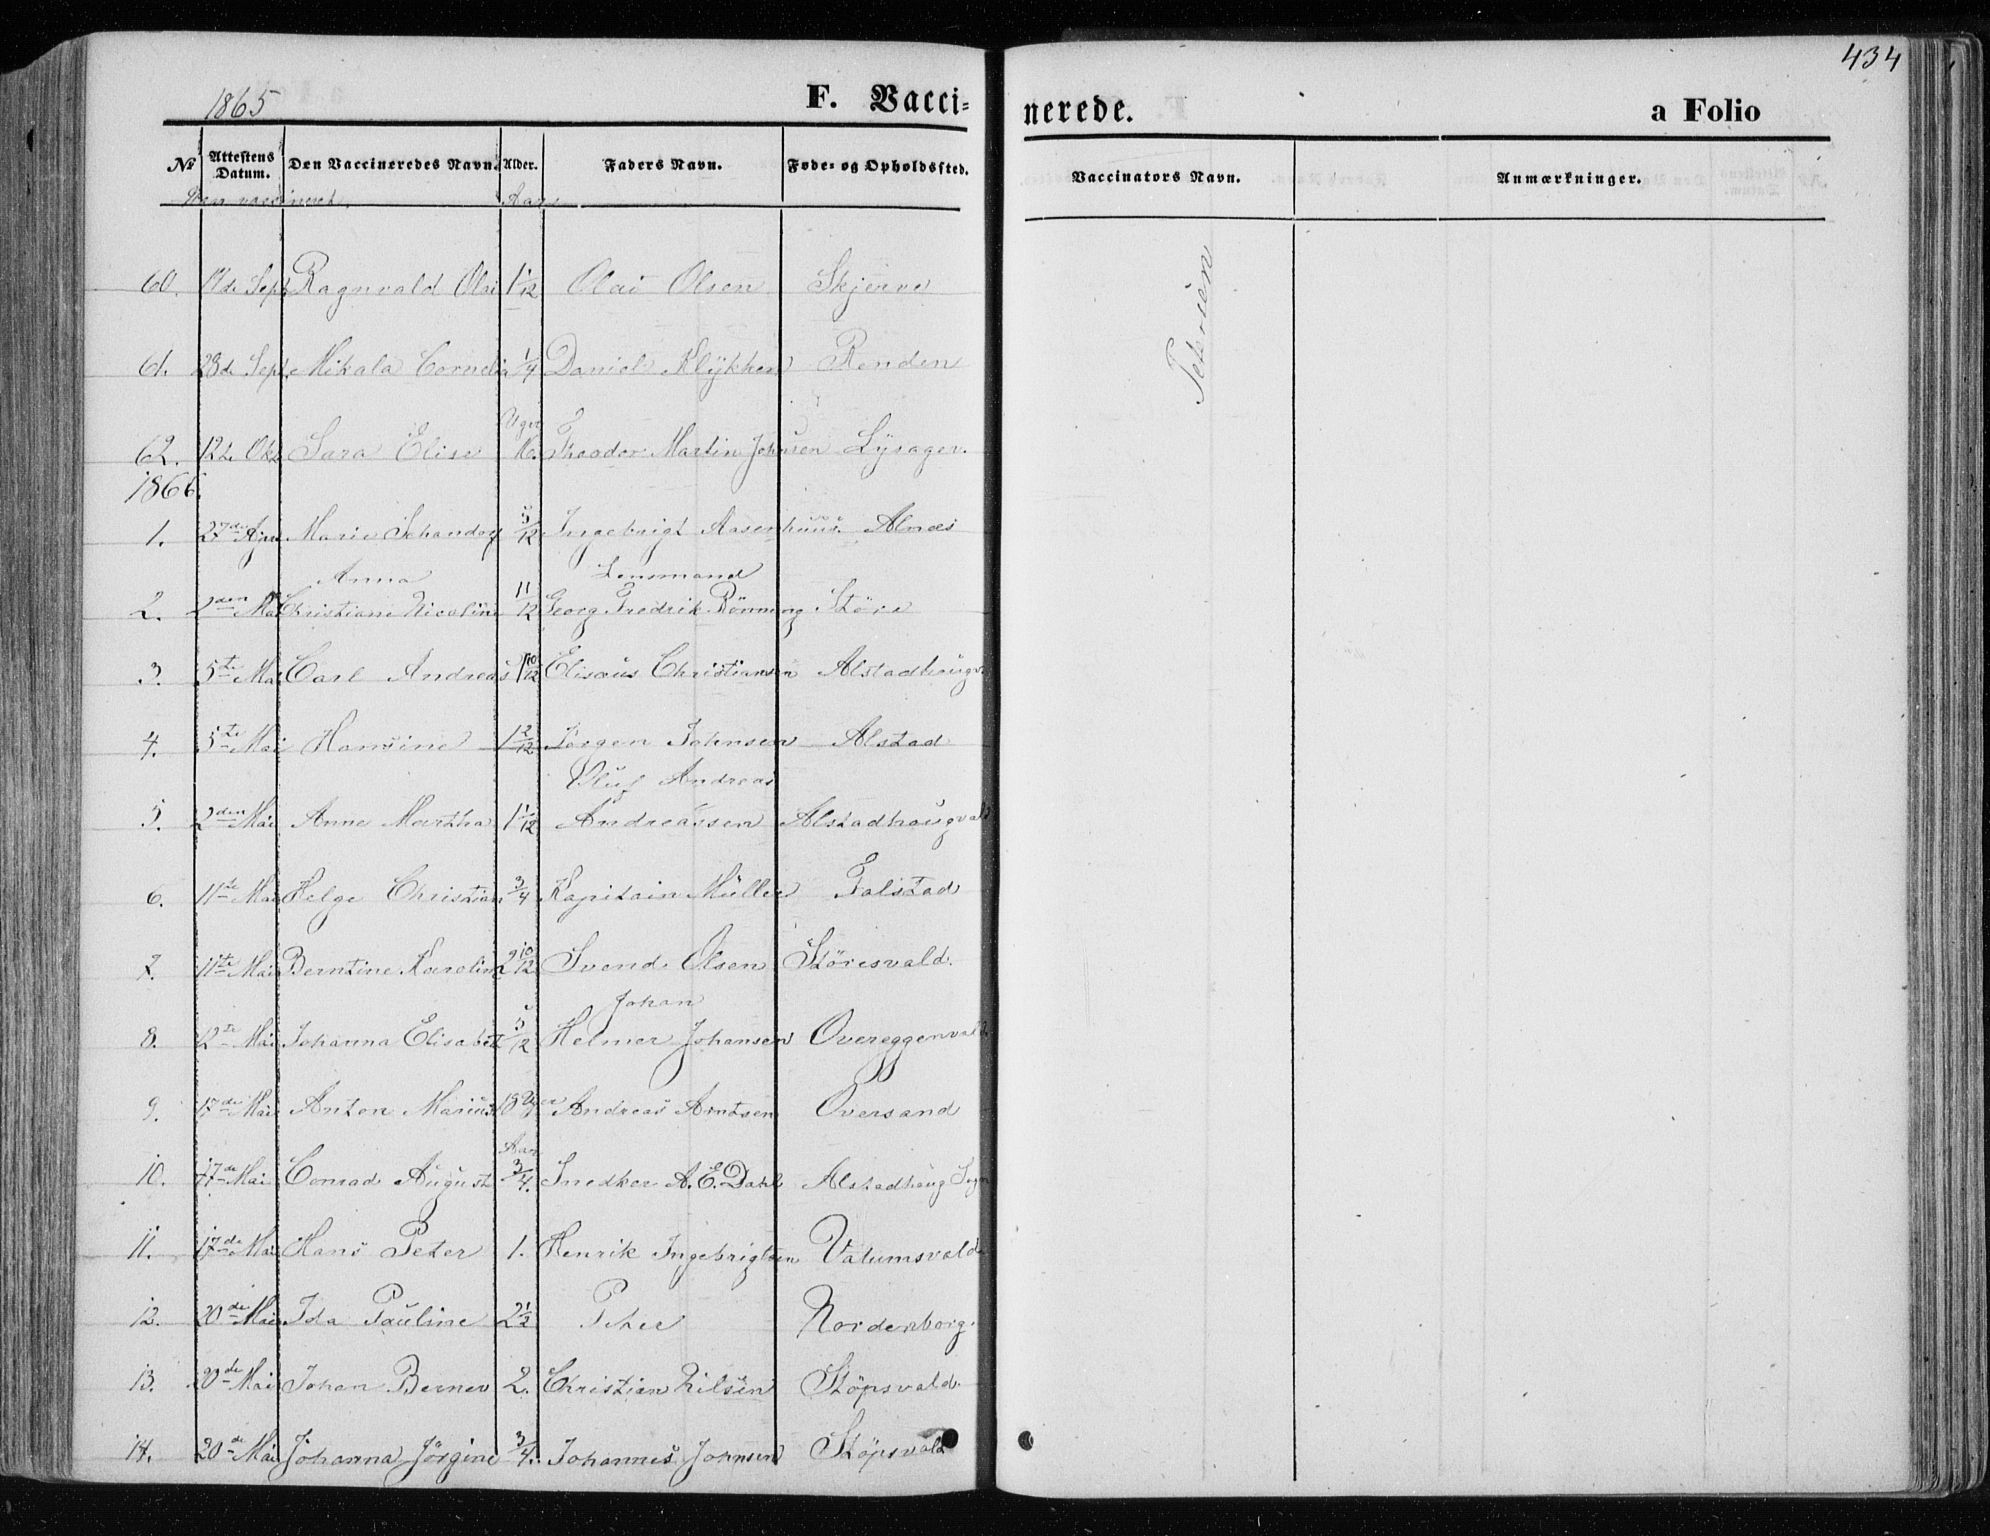 434
1865
F. Vacci=
nerede.
a Folio
No Attestens Datum. Den Vaccineredes Navn. Alder. Faders Navn. Føde- og Opholdssted.
Vaccinators Navn. Anmærkninger.
Aar
60. 17de Sept Ragnvald Olai 1 1/12 Olai Olsen Skjerve
61. 28de Sept. Mikala Cornelia 1/4 Daniel Klykken Renden
Uger
62. 12t. Okt Sara Elise 16. Theodor Martin Johnsen Lysager.
1866.
1. 27de Apr Marie Schandorf 5/12 Ingebrigt Aasenhuus. Alnæs
Anna Lensmand
2. 2den Mai Christiane Nicoline 11/12 Georg Fredrik Rönning Störe
3. 5te Mai Carl Andreas 1 10/12 Elisæus Christiansen Alstadhaugv
4. 5te Mai Hansine 1 2/12 Jørgen Johnsen Alstad
Oluf Andreas
5. 2den Mai Anne Martha 1 1/12 Andreassen Alstadhaugvald
6. 11te Mai Helge Christian 3/4 Kapitain Müller Falstad
7. 11te Mai Berntine Karoline 2 10/12 Svend Olsen Störesvald.
Johan
8. 12te Mai Johanna Elisabet 5/12 Helmer Johansen Overeggenvald
9. 17de Mai Anton Marius 18 Uger Andreas Arntsen Oversand
Aar
10. 17de Mai Conrad August 3/4. Snedker A. E. Dahl Alstadhaug Sogn
11. 17de Mai Hans Peter 1. Henrik Ingebrigtsen Valumsvald
12. 20de Mai Ida Pauline 2 1/2 Peter Nordenborg.
13. 20de Mai Johan Berner 2. Christian Nilsen Stöpsvald.
14. 20de Mai Johanna Jörgine 3/4. Johannes Johnsen Stöpsvald
Petersen